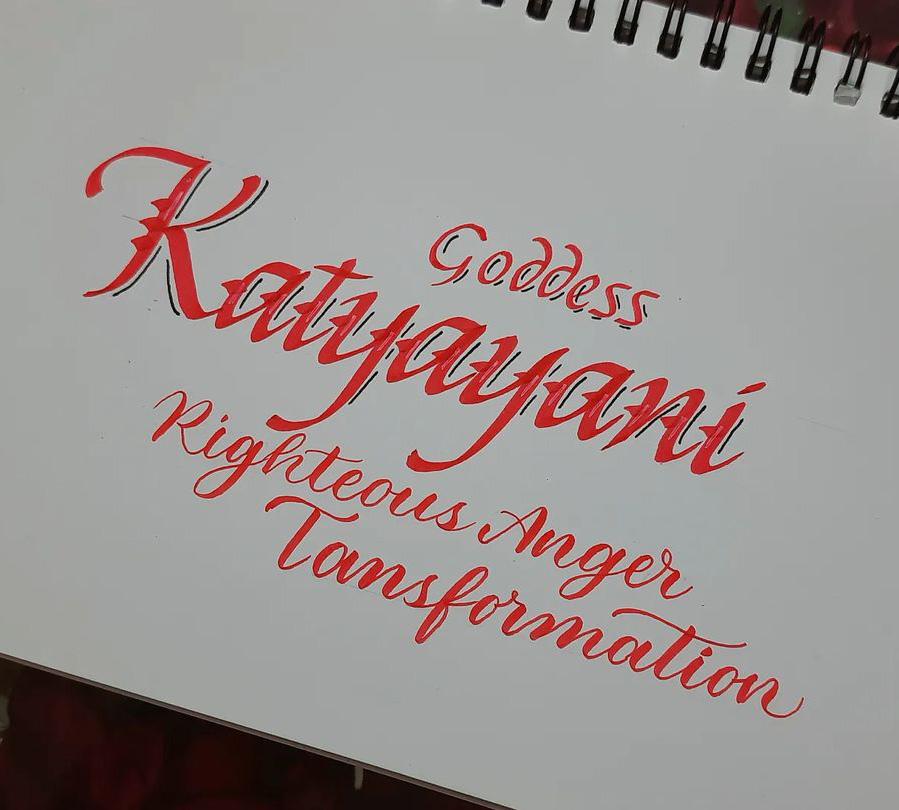 Goddess
Katyayani
Righteous Anger
Tansformation